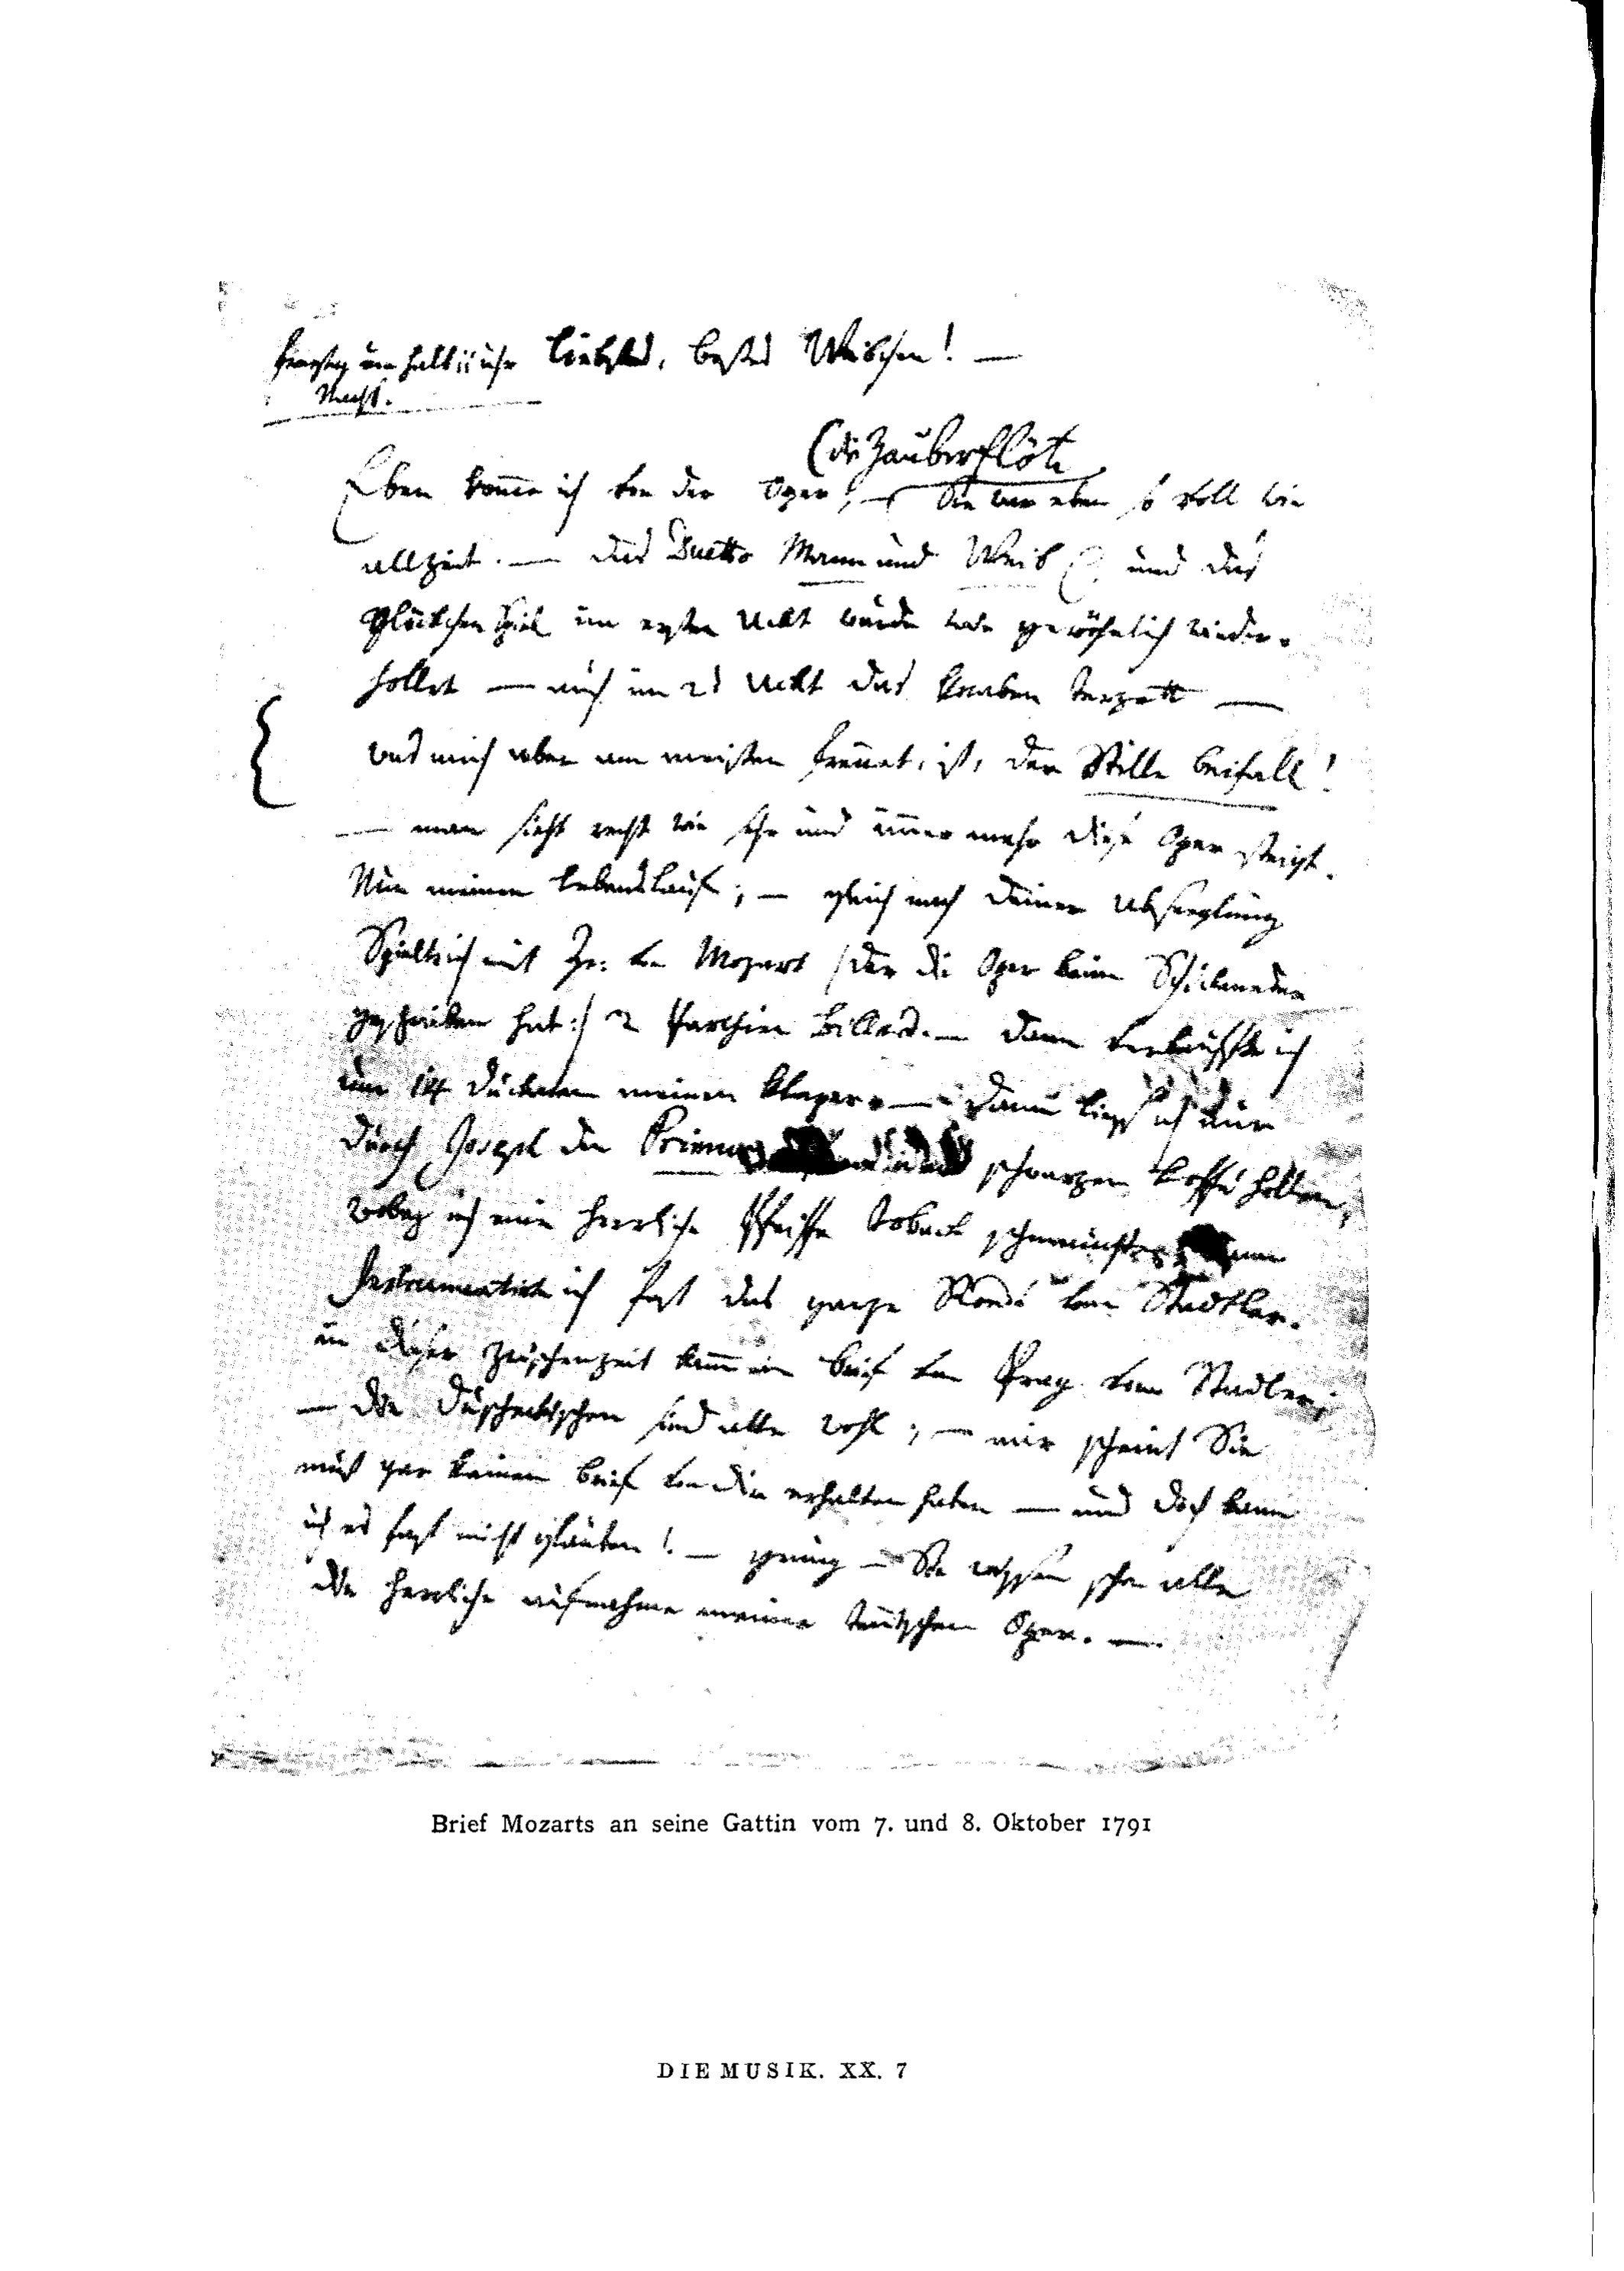 freytag um halb 11 uhr liebstes, bestes Weibchen! —
Nacht.
(die Zauberflöte
Eben komme ich von der Oper; — Sie war eben so voll wie
allzeit. — das Duetto Mann und Weib etc: und das
Glöckchen Spiel im ersten Ackt wurde wie gewöhnlich wieder-
hollet — auch im 2t Ackt das knaben terzett —
was mich aber am meisten freuet, ist, der Stille beifall!
— man sieht recht wie sehr und immer mehr diese Oper steigt.
Nun meinen lebenslauf; — gleich nach deiner Abseeglung
Spielte ich mit Hr: von Mozart /:der die Oper beim Schickaneder
geschrieben hat:/ 2 Parthien Billard. — dann verkauffte ich
um 14 duckaten meinen kleper. — dann liess ich mir
durch Joseph den Primus schwarzen koffé hollen,
wobey ich eine herrliche Pfeiffe toback schmauchte; dann
Instrumentirte ich fast das ganze Rondó vom Stadtler.
in dieser zwischenzeit kamm ein brief von Prag vom Stadler;
— die Duscheckischen sind alle wohl; — mir scheint Sie
muß gar keinen brief von dir erhalten haben — und doch kann
ich es fast nicht glauben! — genug — Sie wissen schon alle
die herrliche aufnahme meiner teutschen Oper. —
Brief Mozarts an seine Gattin vom 7. und 8. Oktober 1791
DIE MUSIK. XX. 7